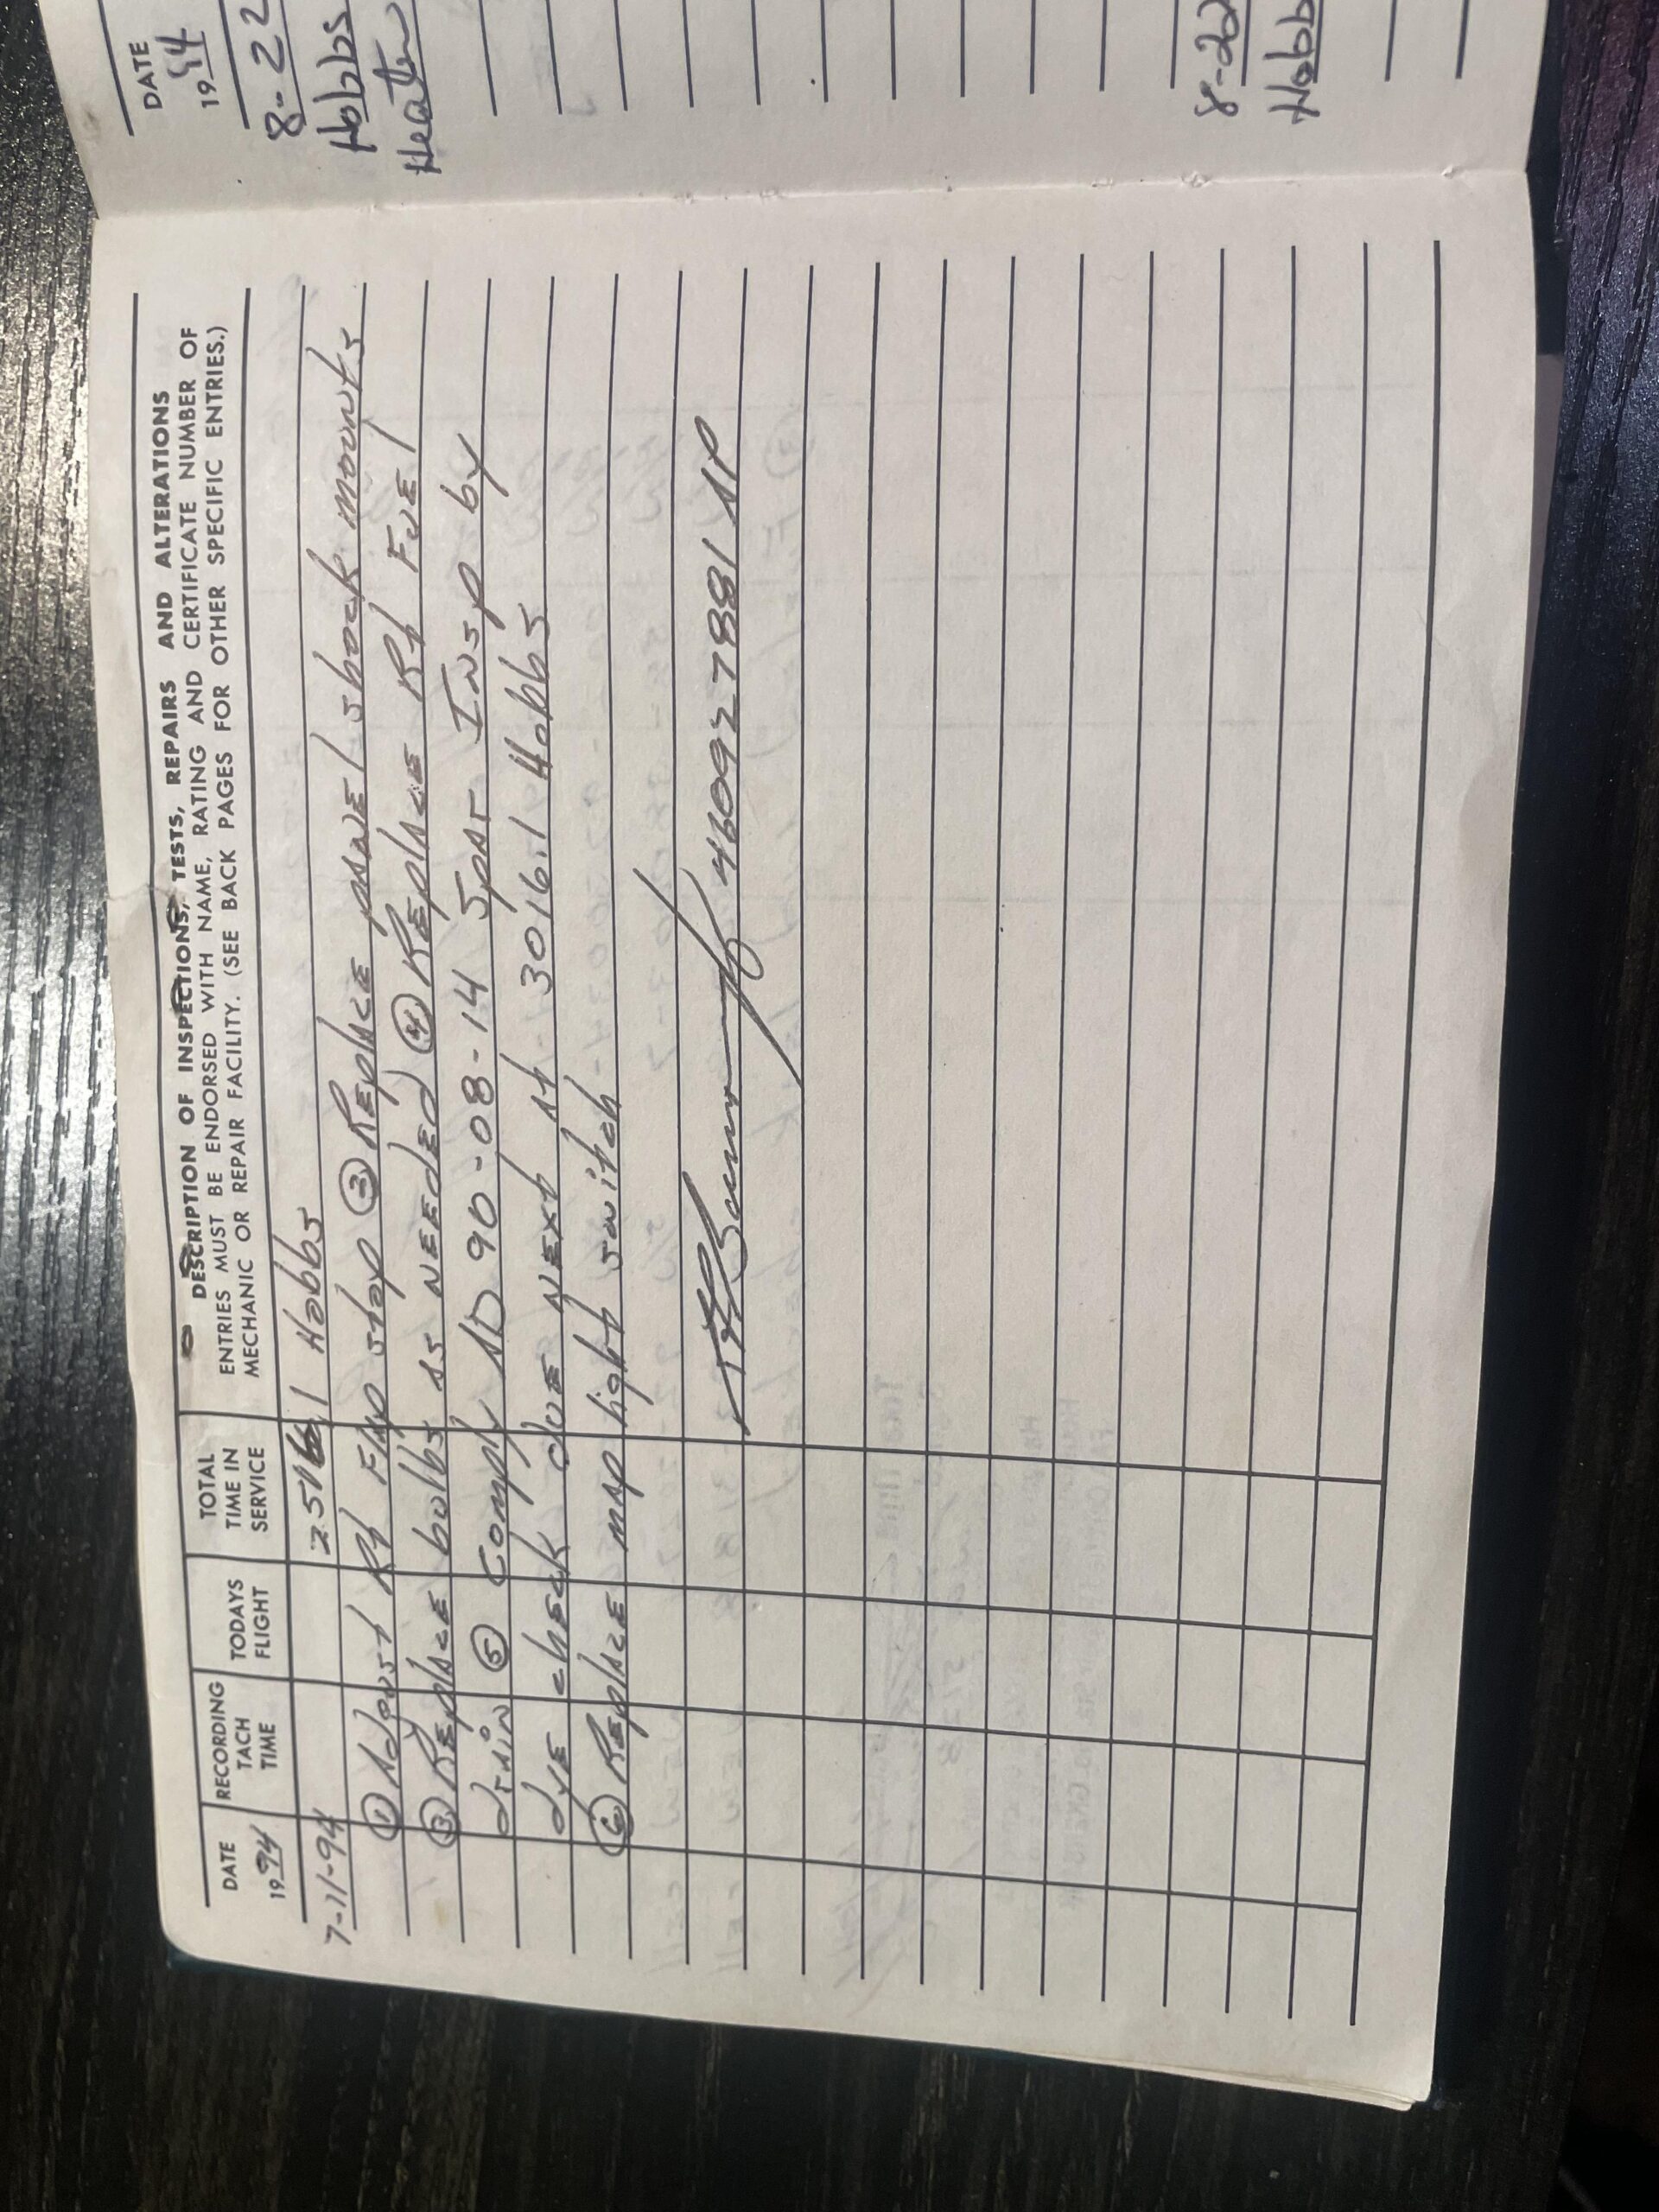 DESCRIPTION OF INSPECTIONS, TESTS, REPAIRS AND ALTERATIONS
ENTRIES MUST BE ENDORSED WITH NAME, RATING AND CERTIFICATE NUMBER OF
MECHANIC OR REPAIR FACILITY. (SEE BACK PAGES FOR OTHER SPECIFIC ENTRIES.)
DATE
1994
RECORDING
TACH
TIME
TODAYS
FLIGHT
TOTAL
TIME IN
SERVICE
7-11-94 2516.1 Hobbs
① Adjust Rt Flap stop ③ Replace panel shock mounts
② Replace bulbs as needed ④ Replace Rt Fuel
drain ⑤ Comply AD 90-08-14 Spar Insp by
dye check due next at 3016.1 Hobbs
⑥ Replace map light switch
460927881 AP
DATE
1994
8-22
Hobbs
Heater
8-22
Hobb